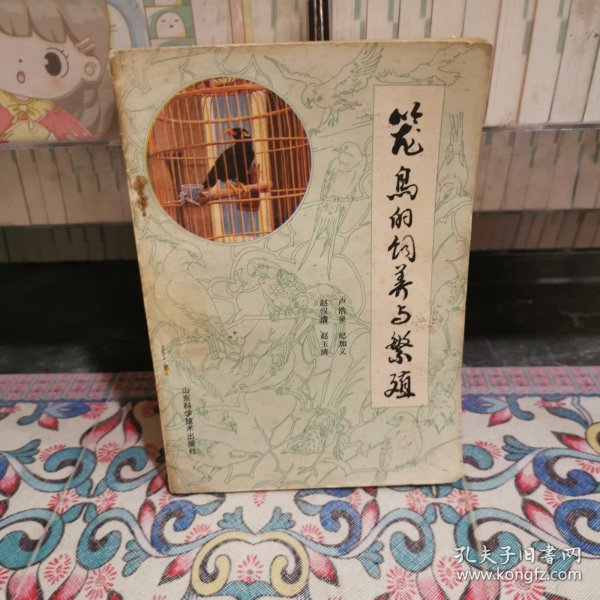 笼鸟的饲养与繁殖
卢浩泉 纪加义
赵汉清 赵玉清
山东科学技术出版社
孔夫子旧书网
www.kongfz.com